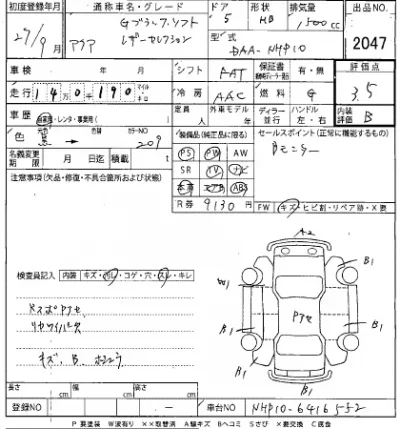 初度登録年月 通称車名・グレード ドア 形状 排気量 出品NO.
29/9月 アクア Gブラックソフト レザーセレクション 5 HB 1500cc
型式 DAA-NHP10 2047
車検 年 月 シフト FAT 保証書 有・無 評価点
走行 14万0190 マイル・キロ 冷房 AAC 燃料 G 3.5
車歴 自家用・レンタ・事業用( ) 定員 人 外車モデル 年 ディーラー・並行 ハンドル 左・右 内装評価 B
色 元色 黒→ 色替 カラーNO 209 装備品(純正品に限る) セールスポイント(正常に機能するもの)
名義変更期限 月 日迄 積載 t PS PW AW Bモニター
注意事項(欠品・修復・不具合箇所および状態) SR TV ナビ
本革 エアB ABS
R券 9130円 FW キズ・ヒビ割・リペア跡・X要
A2
検査員記入 内装 キズ・汚レ・コゲ・穴・スレ・キレ
W1 B1
ドスポアクセ
リヤワイパー欠 Pアセ
B1 B1
キズ、B、
B1 B1
長さ cm 幅 cm 高さ cm
登録NO ー 車台NO NHP10-6416552
P 要塗装 W波有り ××取替済 A線キズ Bヘコミ Sさび ×要交換 C腐食